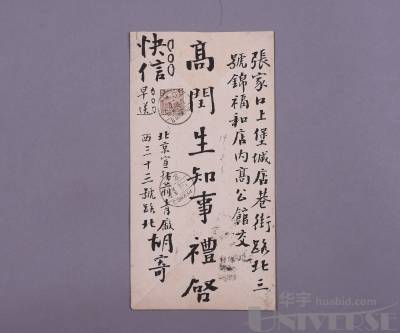 張家口上堡城店巷街路北三
號錦福和店内高公館交
高閏生知事禮啓
快信
早送
北京宣外前青廠
西三十三號路北胡寄
华宇 huabid.com
UNIVERSE